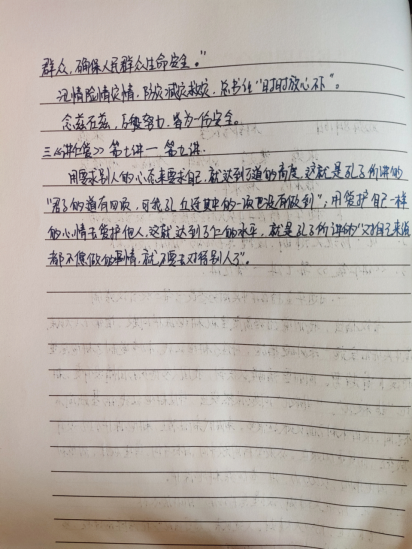 群众，确保人民群众生命安全。"
汛情险情灾情，防灾减灾救灾，总书记"时时放心不下"。
念兹在兹，万般努力，皆为一个安全。
三《讲仁爱》第七讲一 第九讲
用要求别人的心态来要求自己，就达到了道的高度，这就是孔子所讲的
"君子的道有四项，可我孔丘连其中的一项也没有做到"，用爱护自己一样
的心情去爱护他人，这就达到了仁的水平，就是孔子所讲的"对自己来说
都不想做的事情，就不要去对待别人了"。